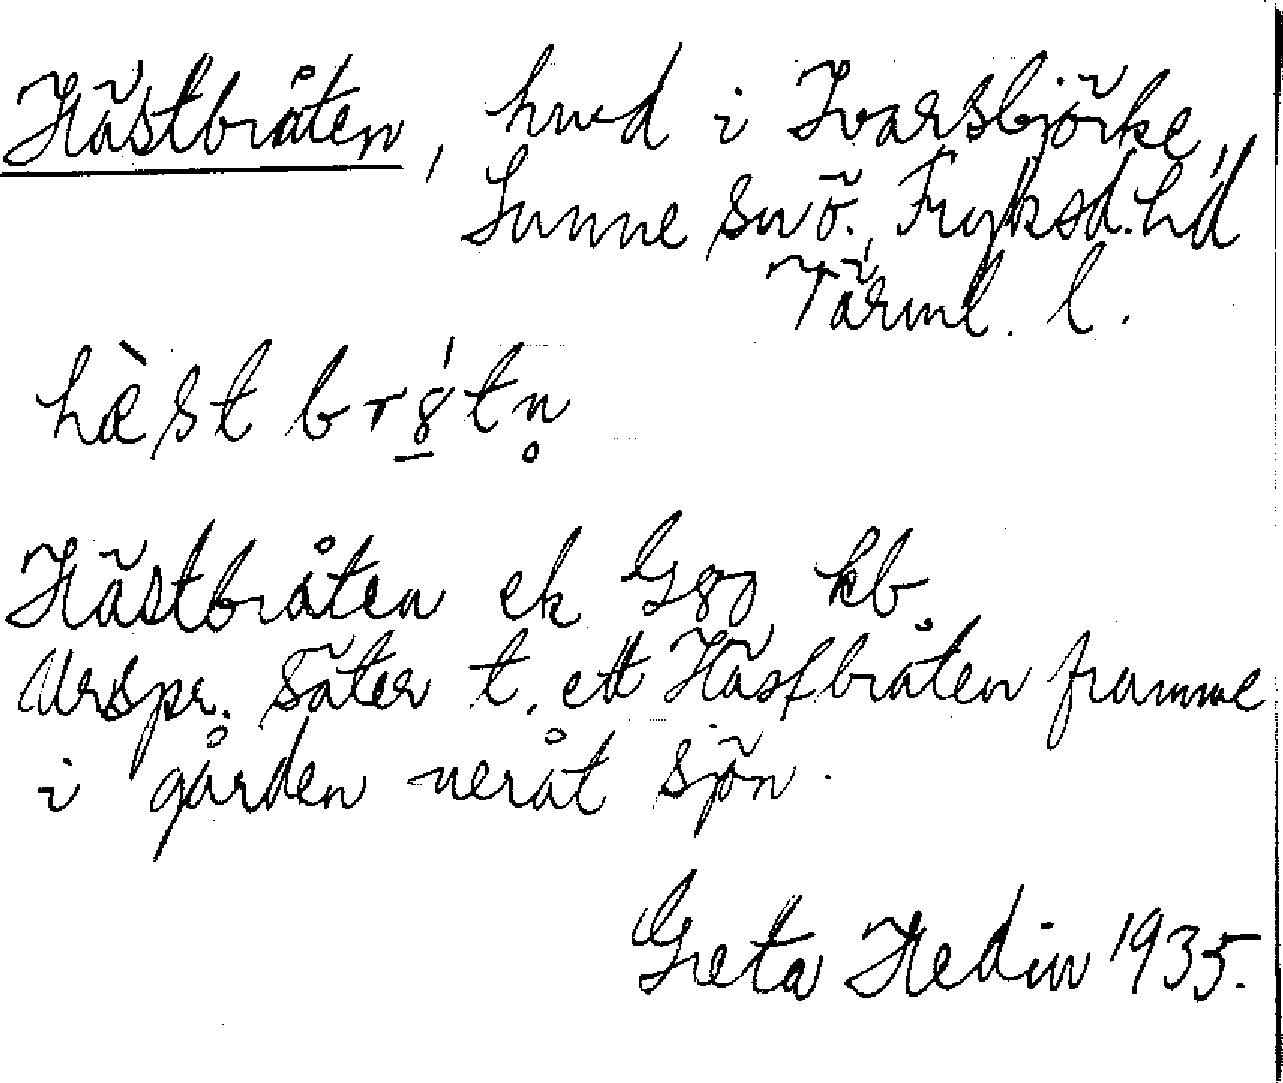 Hästbråten, hmd i Ivarsbjörke,
Sunne snö., Fryksd. hd
Värml. l.
hæ̀st br8́tn̥
Hästbråten ek G89 kb.
Urspr. säter t. ett Hästbråten framme
i gården neråt sjön.
Greta Hedin 1935.